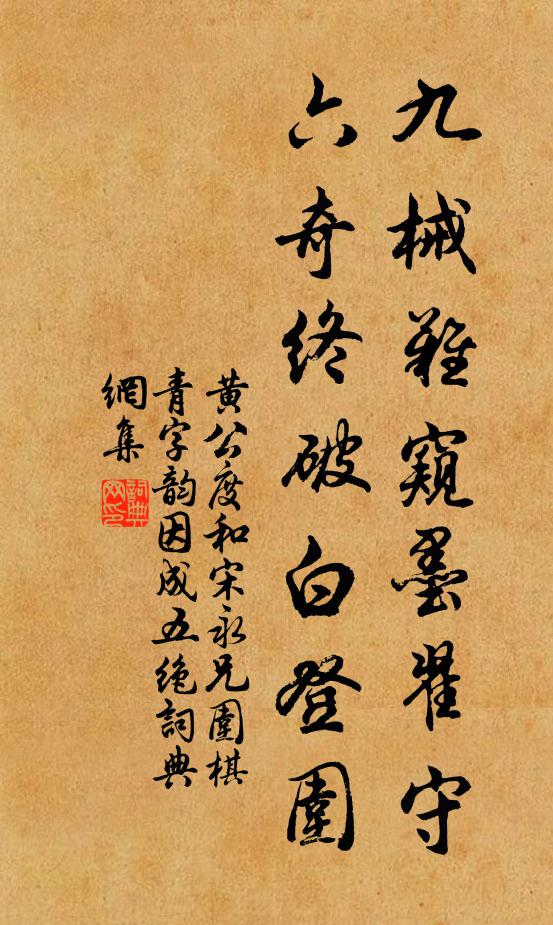 九械難窺墨翟守
六奇終破白登圍
黃公度和宋永兄圍棋
青字韵因成五絶詞典
網集
詞典
网印